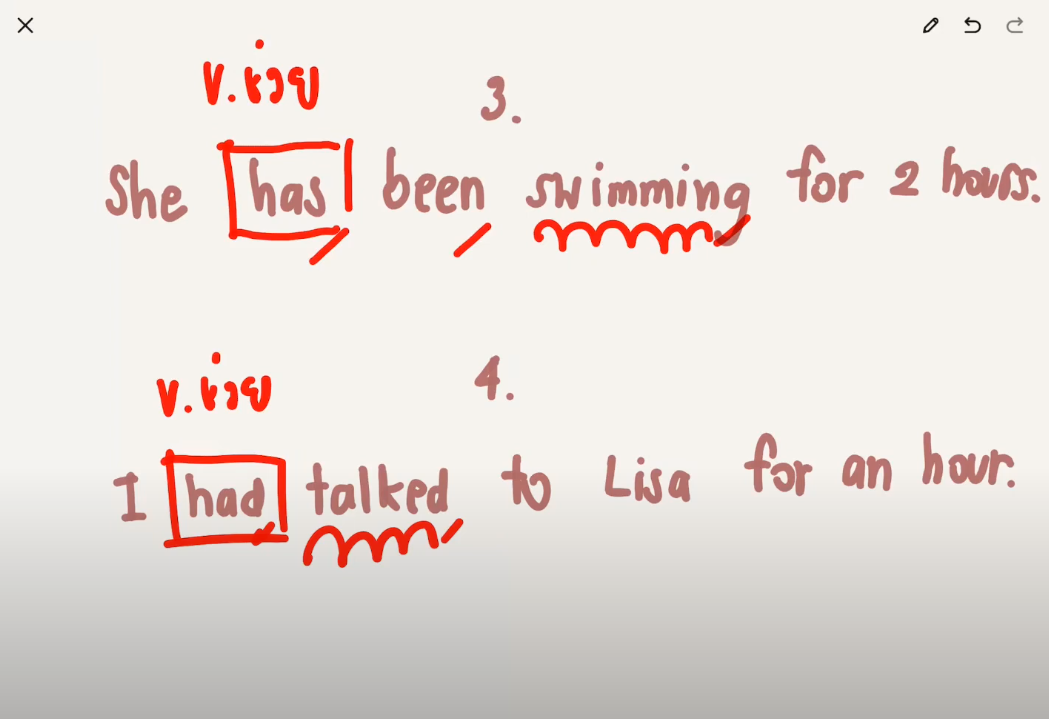 v.ช่วย
3.
She has been swimming for 2 hours.
v.ช่วย
4.
I had talked to Lisa for an hour.